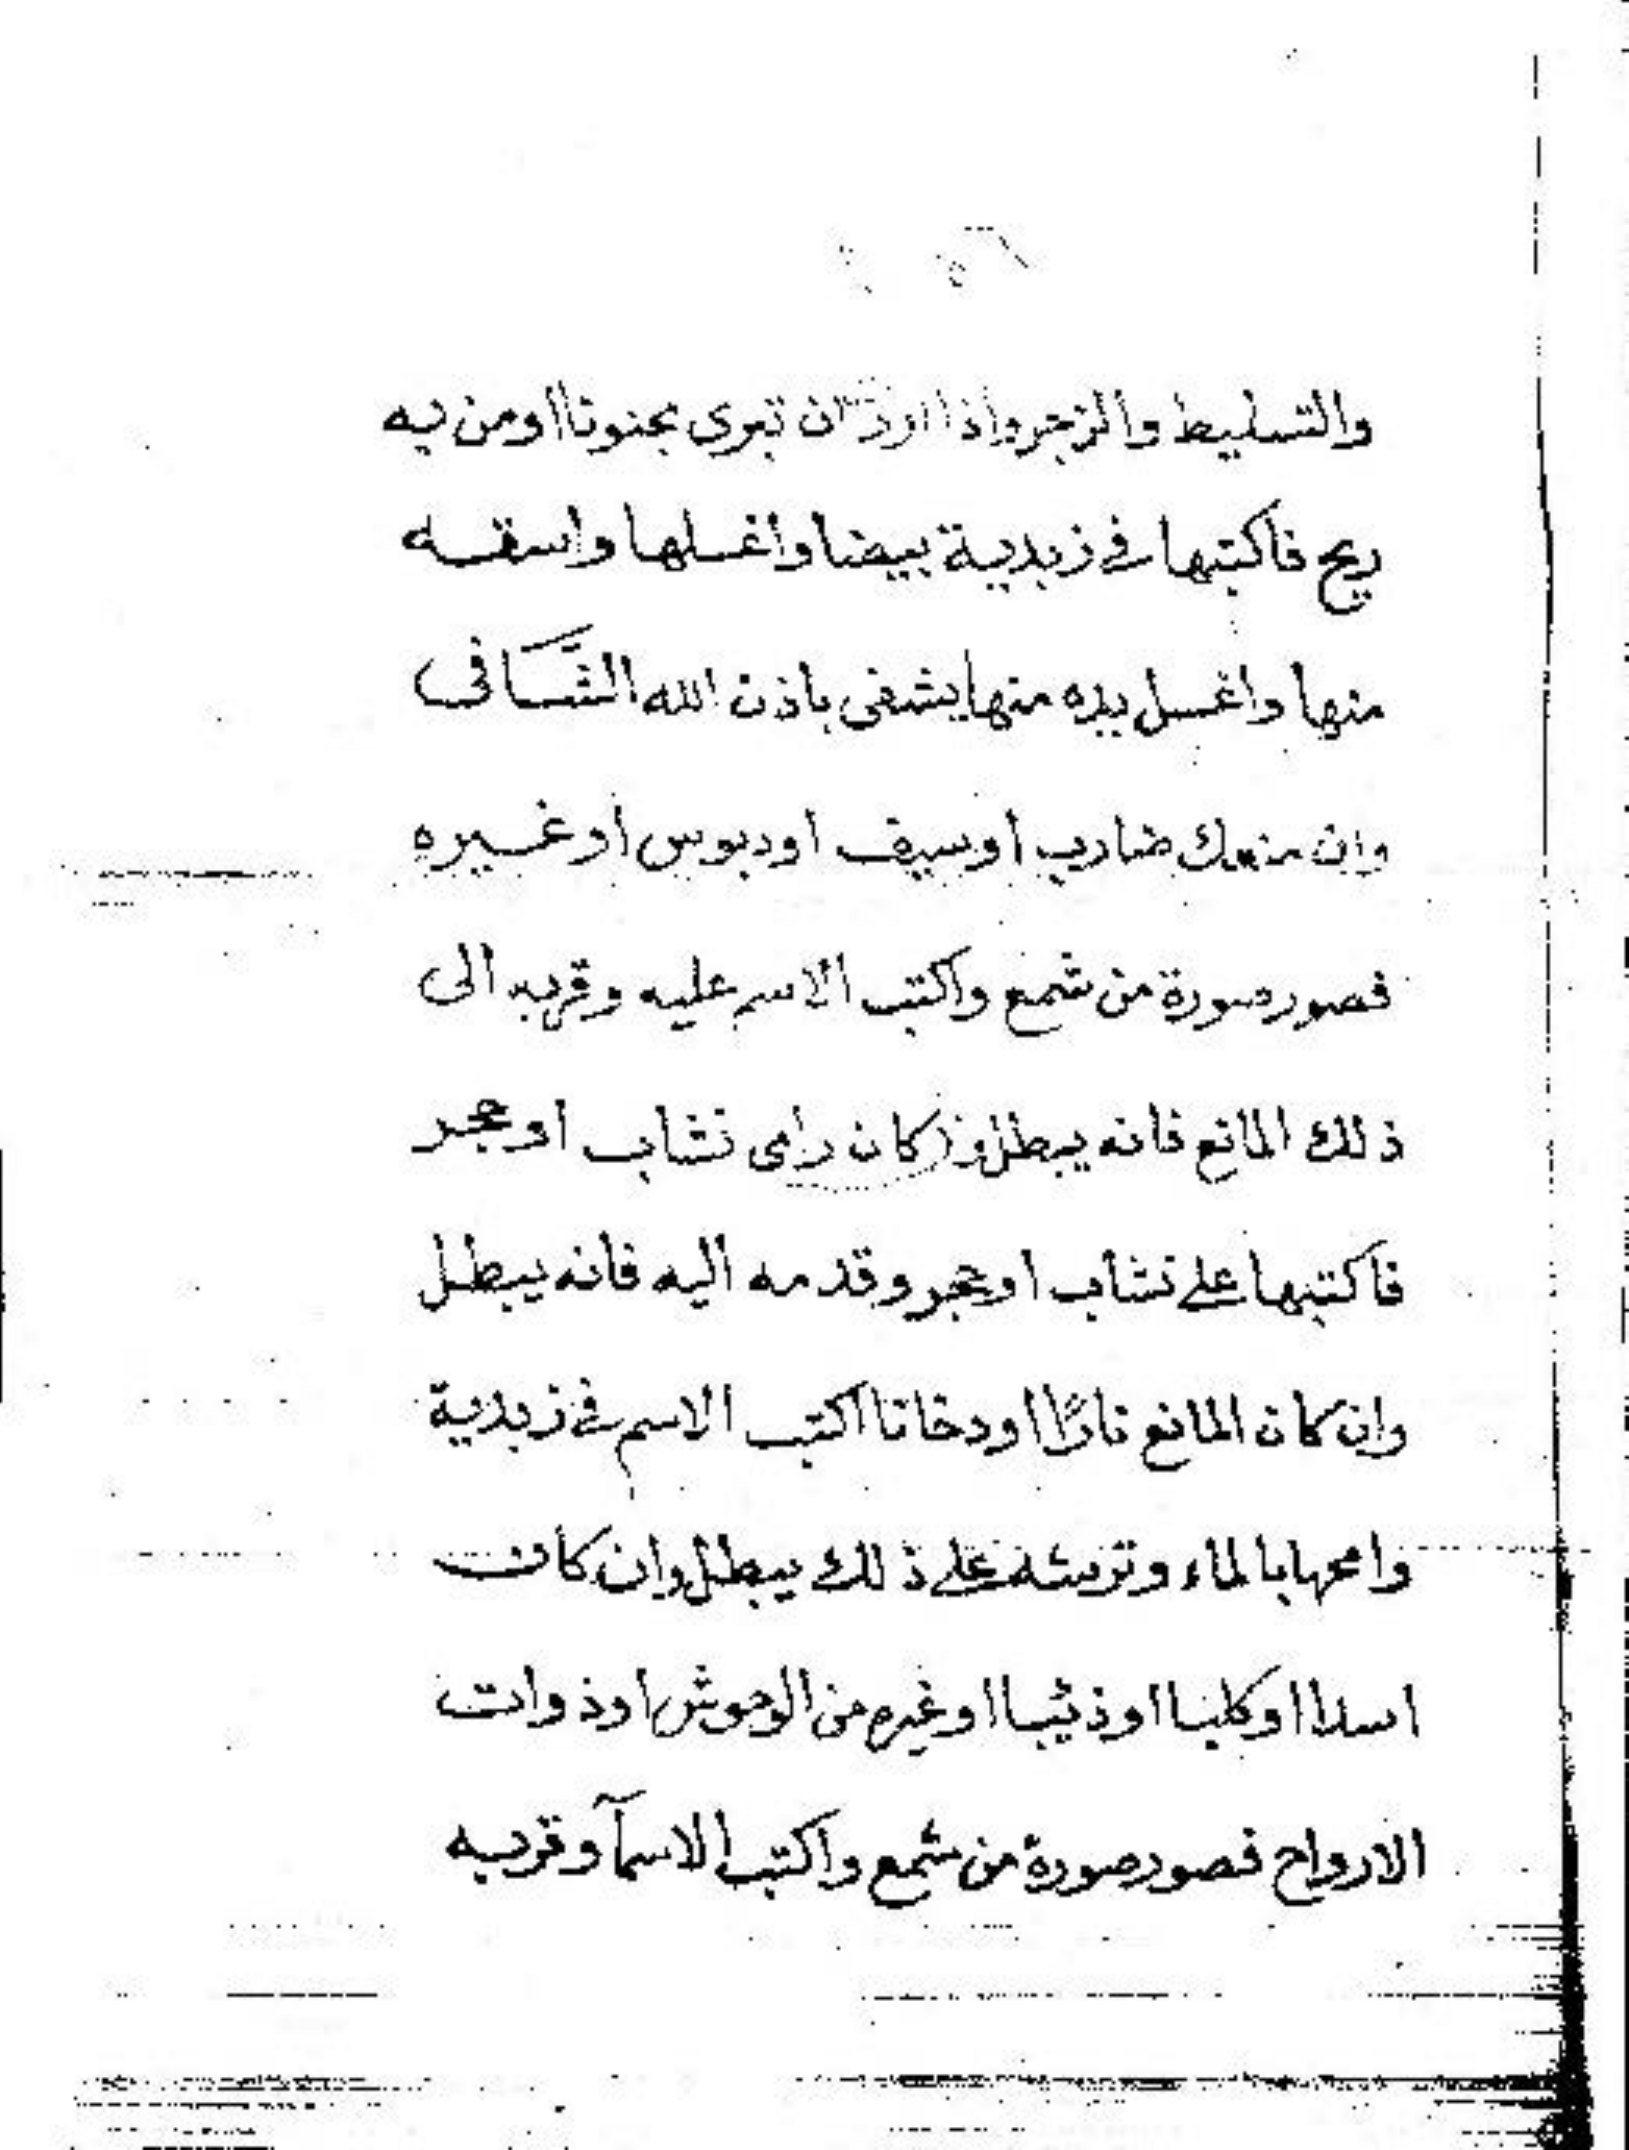 والتسليط والزجر واذا اردت ان تبرى مجنونا او من به
ريح فاكتبها فى زبدية بيضا واغسلها واسقه
منها واغسل يده منها يشفى باذن الله الشَّافى
وان منعك ضارب او سيف او دبوس او غيره
فصور صورة من شمع واكتب الاسم عليه وقربه الى
ذلك المانع فانه يبطل وان كان رامى نشاب او حجر
فاكتبها على نشاب او حجر وقدمه اليه فانه يبطل
وان كان المانع نارًا او دخانا اكتب الاسم فى زبدية
وامحها بالماء وترشه على ذلك يبطل وان كان
اسدا او كلبا او ذئبا او غيره من الوحوش او ذوات
الارواح فصور صورة من شمع واكتب الاسمآ وقربه